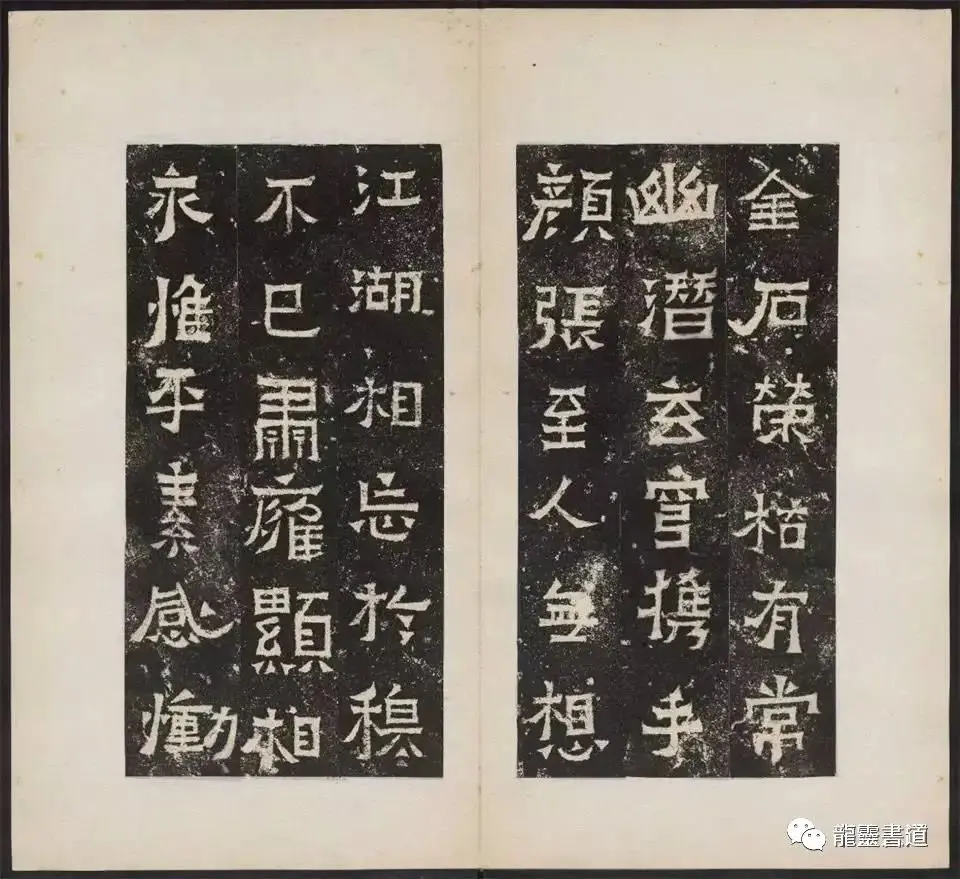 金石榮枯有常
幽潛玄穹携手
顔張至人無想
江湖相忘於穆
不已肅雍顯相
永惟平素感慟
龍靈書道